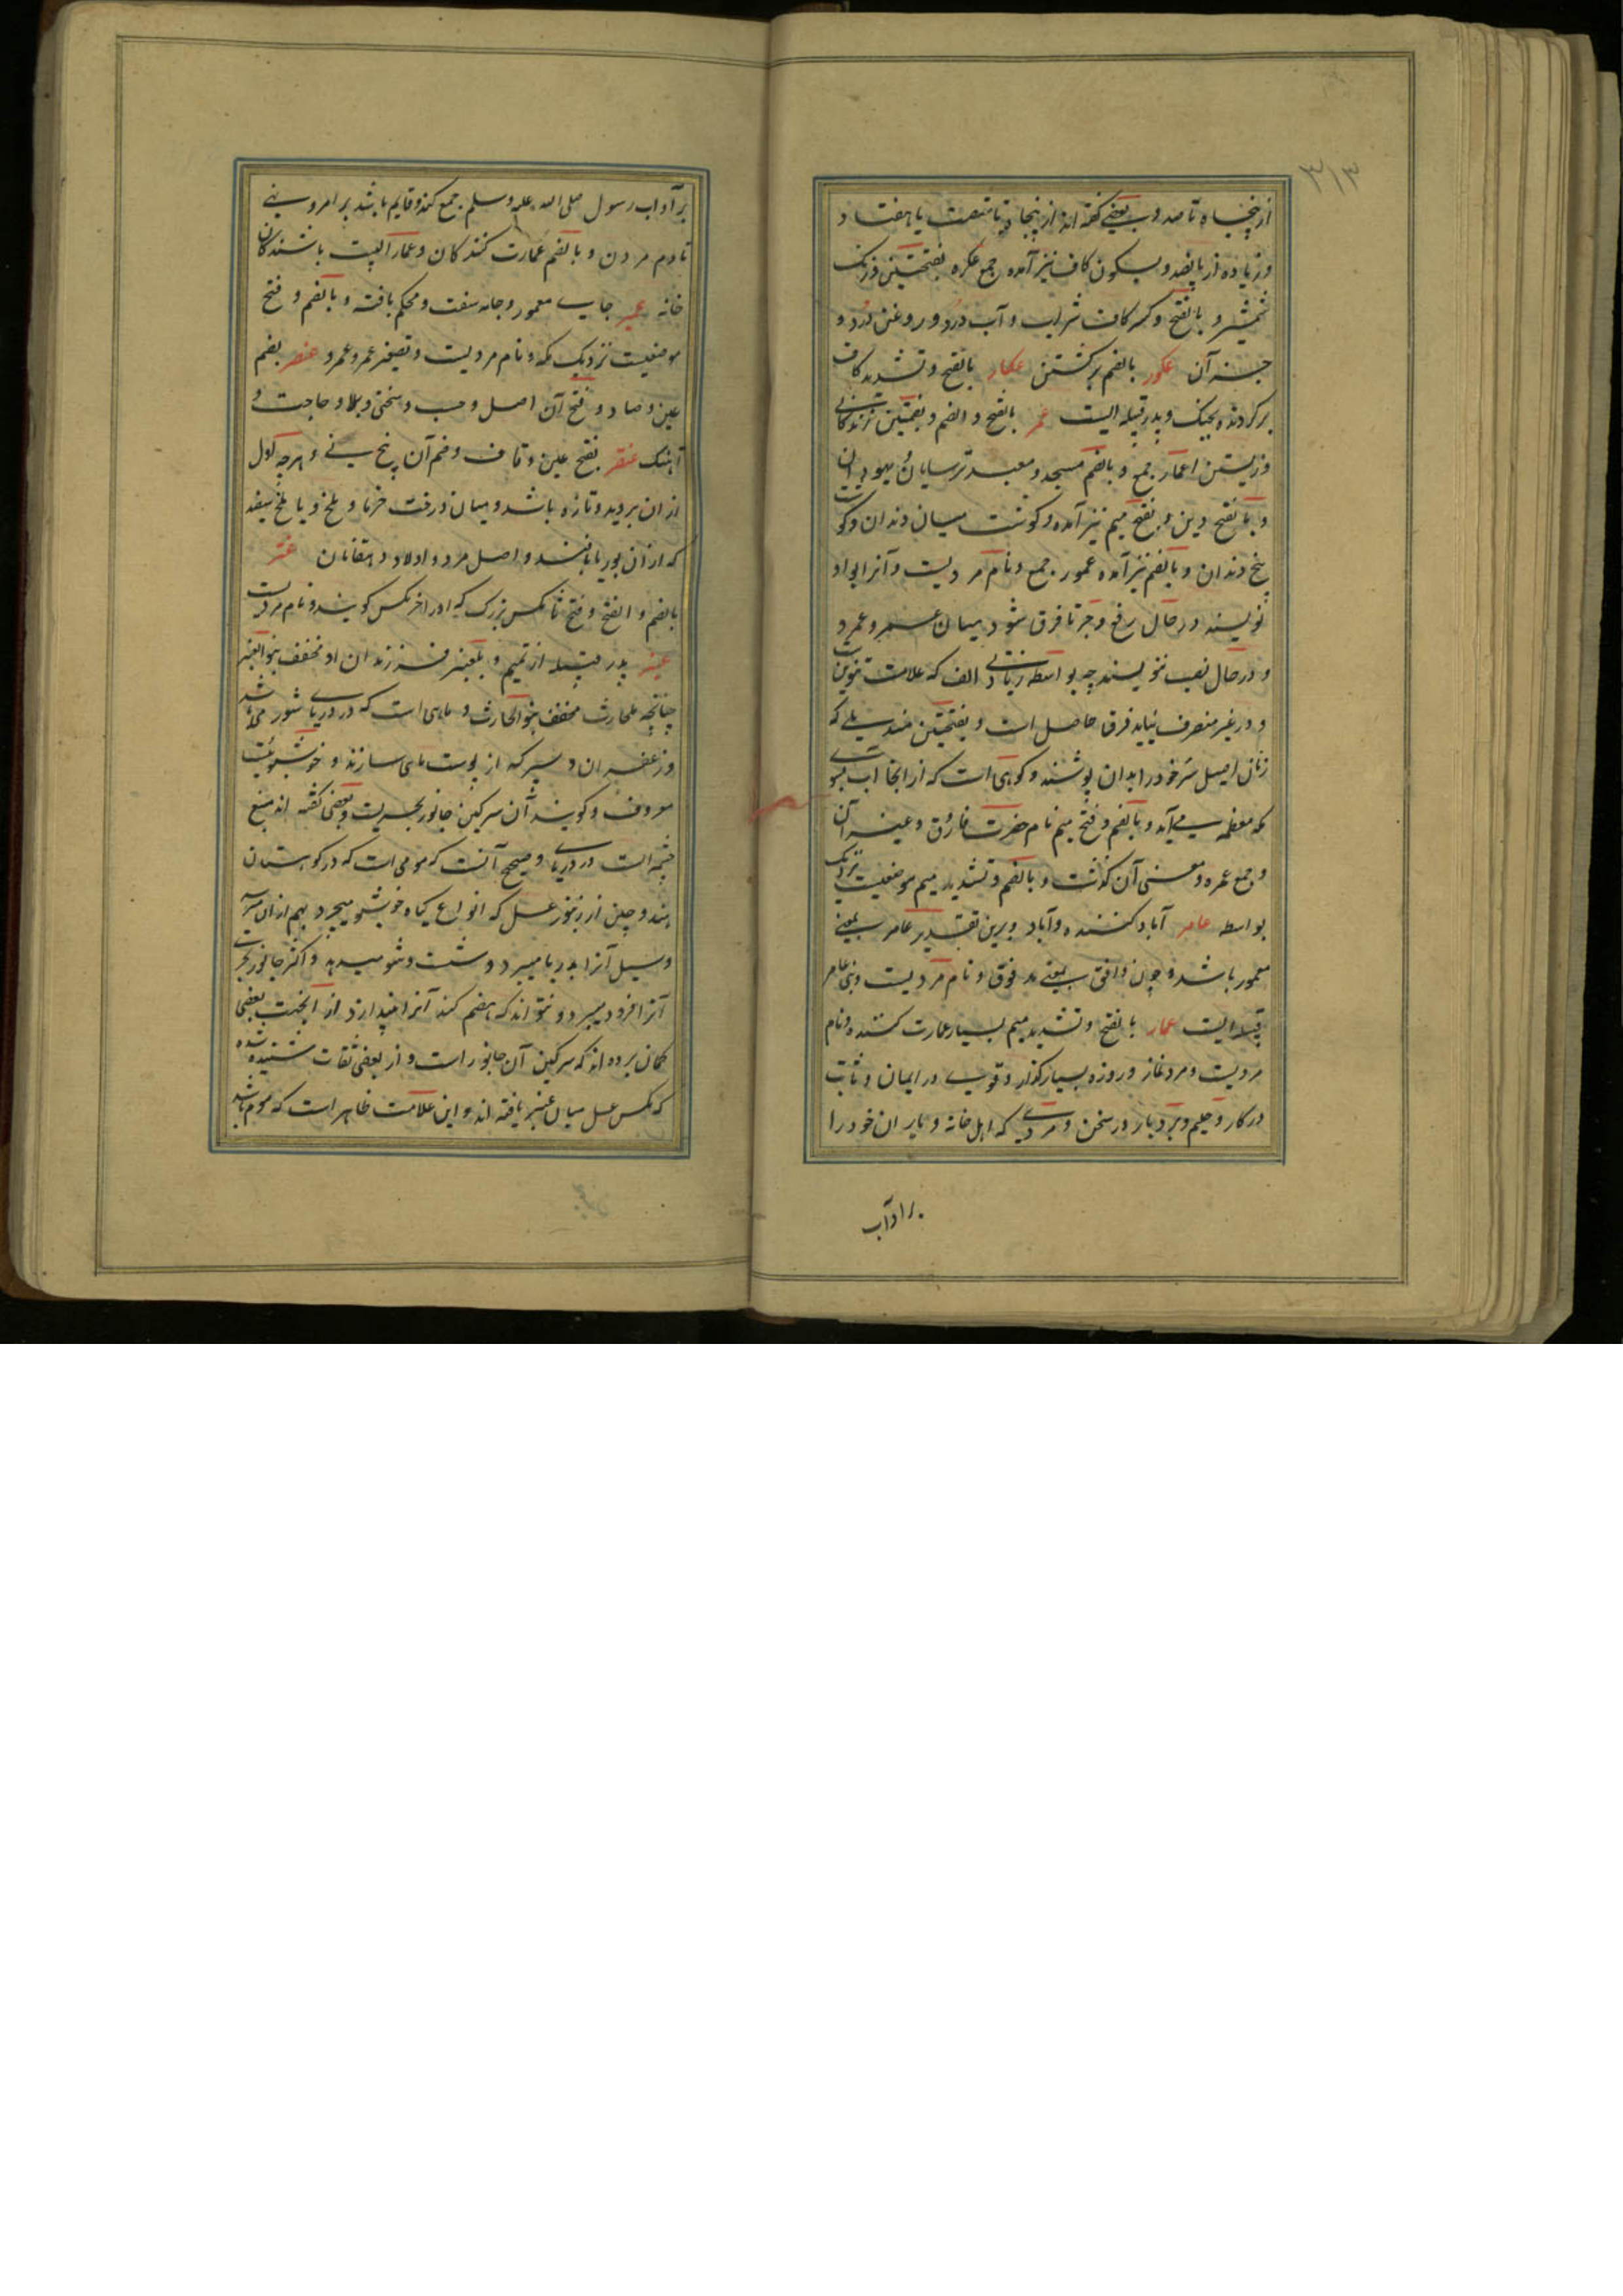 ۳۱۳
از پنجاه تا صد و بعضی گفته اند از پنجاه تا شصت یا هفتاد
و زیاده از پانصد و بسکون کاف نیز آمده جمع عکره بفتحتین و زنک
شمشیر و بالفتح و کسر کاف شراب و آب درد و روغن درد و
جز آن عکور بالضم برگشتن عکار بالفتح و تشدید کاف
برگردنده بجنک و پدر قبیله ایست عمر بالفتح و الضم و بضمتین زندگانی
و زیستن اعمار جمع و بالضم مسجد و معبد ترسایان و یهودیان
و بالفتح دین و بفتح میم نیز آمده و گوشت میان دندان و گوشت
بیخ دندان و بالضم نیز آمده عمور جمع و نام مردیست و آنرا بواو
نویسند در حال رفع و جر تا فرق شود میان عمر و عمرو
و در حال نصب ننویسند چه بواسطه زیادتی الف که علامت تنوین
و در غیر منصرف نیاید فرق حاصل است و بفتحتین مندیلی که
زنان اصیل سر خود را بدان پوشند و کوهی است که از آنجا آب بسوی
مکه معظمه می آید و بالضم و فتح میم نام حضرت فاروق و غیر آن
و جمع عمره و معنی آن گذشت و بالضم و تشدید میم موضعیست نزدیک
بواسطه عامر آباد کننده و آباد و برین تقدیر عامر بمعنی
معمور باشد و چون دافق بمعنی مدفوق و نام مردیست و بنی عامر
قبیله ایست عمار بالفتح و تشدید میم بسیار عمارت کننده و نام
مردیست و مرد نماز و روزه بسیار گذار و قوی در ایمان و ثابت
در کار و حلیم و بردبار در سخن و مردی که اهل خانه و یاران خود را
بر آداب
بر آداب رسول صلی الله علیه وسلم جمع کند و قایم باشد بر امر و نهی
تا دم مردن و بالضم عمارت کنندکان و عمار البیت باشندکان
خانه عمیر جای معمور و جامه سفت و محکم بافته و بالضم و فتح
موضعیست نزدیک مکه و نام مردیست و تصغیر عمر و عمرو عنصر بضم
عین و صاد و فتح آن اصل و حسب و سختی و بلا و حاجت و
آهنک عنقر بفتح عین و قاف و ضم آن بیخ نی و هرچه اول
از ان بروید و تازه باشد و میان درخت خرما و بلخ و یا بلخ سفید
که از آن بوریا بافند و اصل مرد و اولاد دهقانان عنتر
بالضم و الفتح و فتح تا مکس بزرک که او را خرمکس گویند و نام مردیست
عنبر پدر قبیله از تمیم و بلعنبر فرزندان او مخفف بنو العنبر
چنانچه بلحارث مخفف بنو الحارث و ماهی است که در دریای شور میباشد
و زعفران و سپر که از پوست ماهی سازند و خوشبوئیست
معروف و گویند آن سرکین جانور بحریست و بعضی گفته اند منبع
چشمه ایست در دریای و صحیح آنست که مومی است که در کوهستان
هند و چین از زنبور عسل که انواع گیاه خوشبو میچرد بهم
و سیل آنرا بدریا میبرد و شست و شو میدهد و اکثر جانور بحری
آنرا فرو میبرد و نتواند که هضم کند آنرا از آنجهت بعضی
کمان برده اند که سرکین آن جانور است و از بعضی ثقات شنیده شده
که مکس عسل میان عنبر یافته اند و این علامت ظاهر است که موم باشد